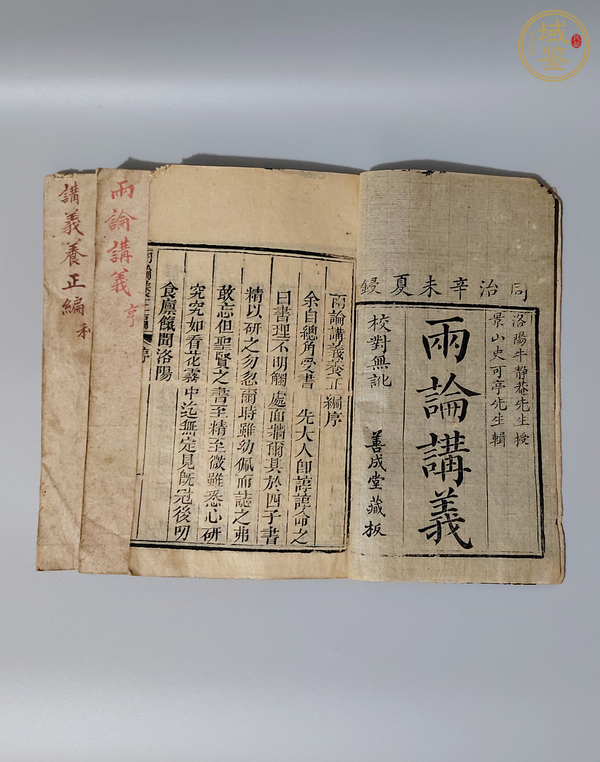 域鉴
同治辛未夏鐫
洛陽牛靜菴先生授
景山史可亭先生輯
兩論講義
校對無訛
善成堂藏板
兩論講義養正編序
余自總角受書 先大人卽諄諄命之
曰書理不明觸處面牆爾其於四子書
精以研之勿忽爾時雖幼佩而誌之弗
敢忘但聖賢之書至精至微雖悉心研
究究如看花霧中迄無定見旣冠後叨
食廩餼聞洛陽
序
兩論講義 亨
講義養正編 利